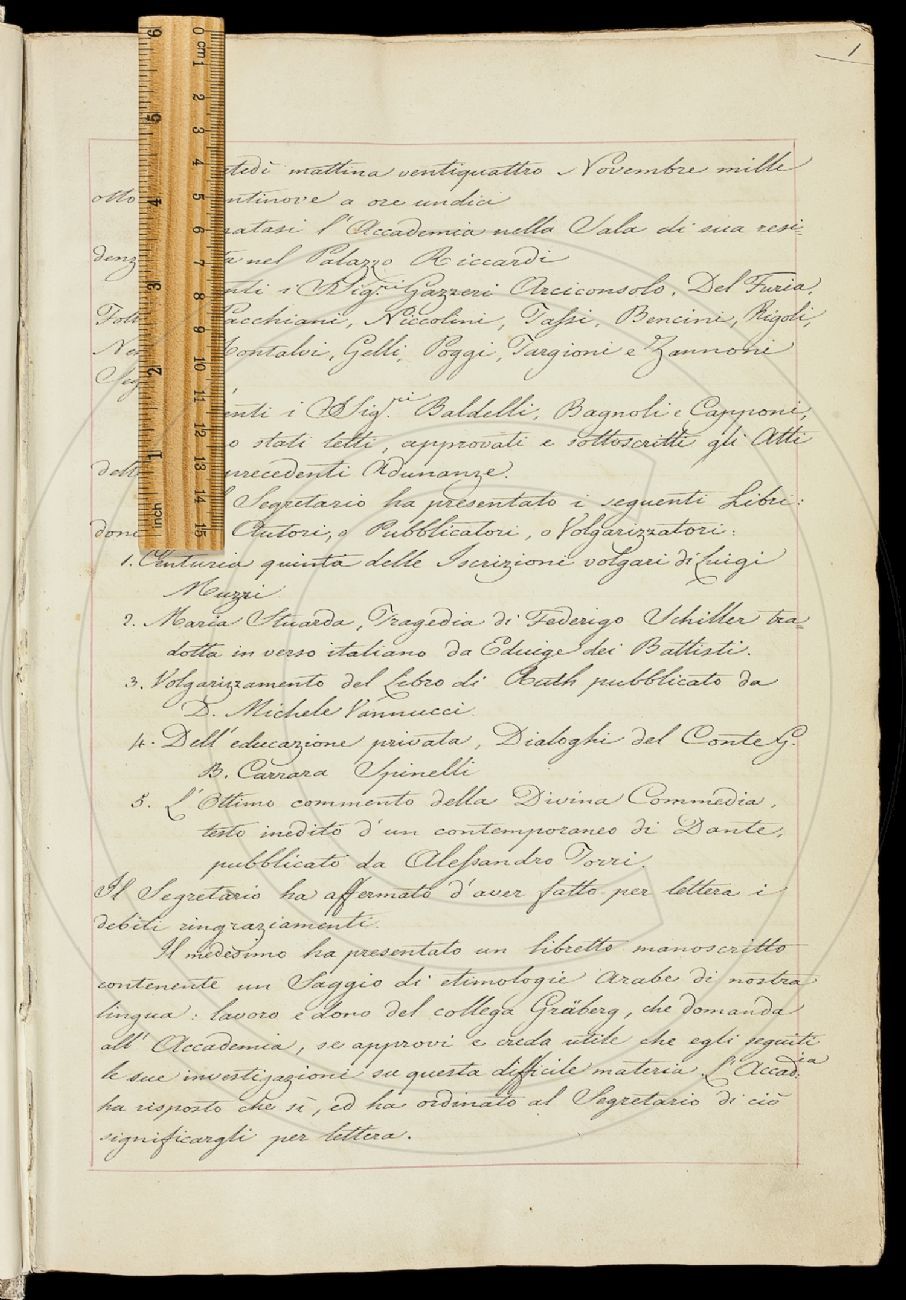 1
mattina ventiquattro Novembre mille
otto ntinove a ore undici
natasi l'Accademia nella Sala di sua resi=
denz a nel Palazzo Riccardi
nti i SSig.ri Gazzeri Arciconsolo, Del Furia,
Pacchiani, Niccolini, Tassi, Bencini, Rigoli,
Montalvi, Gelli, Poggi, Targioni e Zannoni
Seg
enti i SSig.ri Baldelli, Bagnoli e Capponi,
o stati letti, approvati e sottoscritti gli Atti
delle precedenti Adunanze.
Segretario ha presentato i seguenti Libri:
dona Autori, o Pubblicatori, o Volgarizzatori:
1. Centuria quinta delle Iscrizioni volgari di Luigi
Muzzi
2. Maria Stuarda, Tragedia di Federigo Schiller tra=
dotta in verso italiano da Eduige dei Battisti.
3. Volgarizzamento del Libro di Ruth pubblicato da
D. Michele Vannucci
4. Dell'educazione privata, Dialoghi del Conte G.
B. Carrara Spinelli
5. L'Ottimo commento della Divina Commedia,
testo inedito d'un contemporaneo di Dante,
pubblicato da Alessandro Torri.
Il Segretario ha affermato d'aver fatto per lettera i
debiti ringraziamenti.
Il medesimo ha presentato un libretto manoscritto
contenente un Saggio di etimologie Arabe di nostra
lingua: lavoro e dono del collega Gräberg, che domanda
all'Accademia, se approvi e creda utile che egli seguiti
le sue investigazioni su questa difficile materia. L'Accad.ia
ha risposto che sì, ed ha ordinato al Segretario di ciò
significargli per lettera.
0 cm 1 2 3 4 5 6 7 8 9 10 11 12 13 14 15
inch 1 2 3 4 5 6